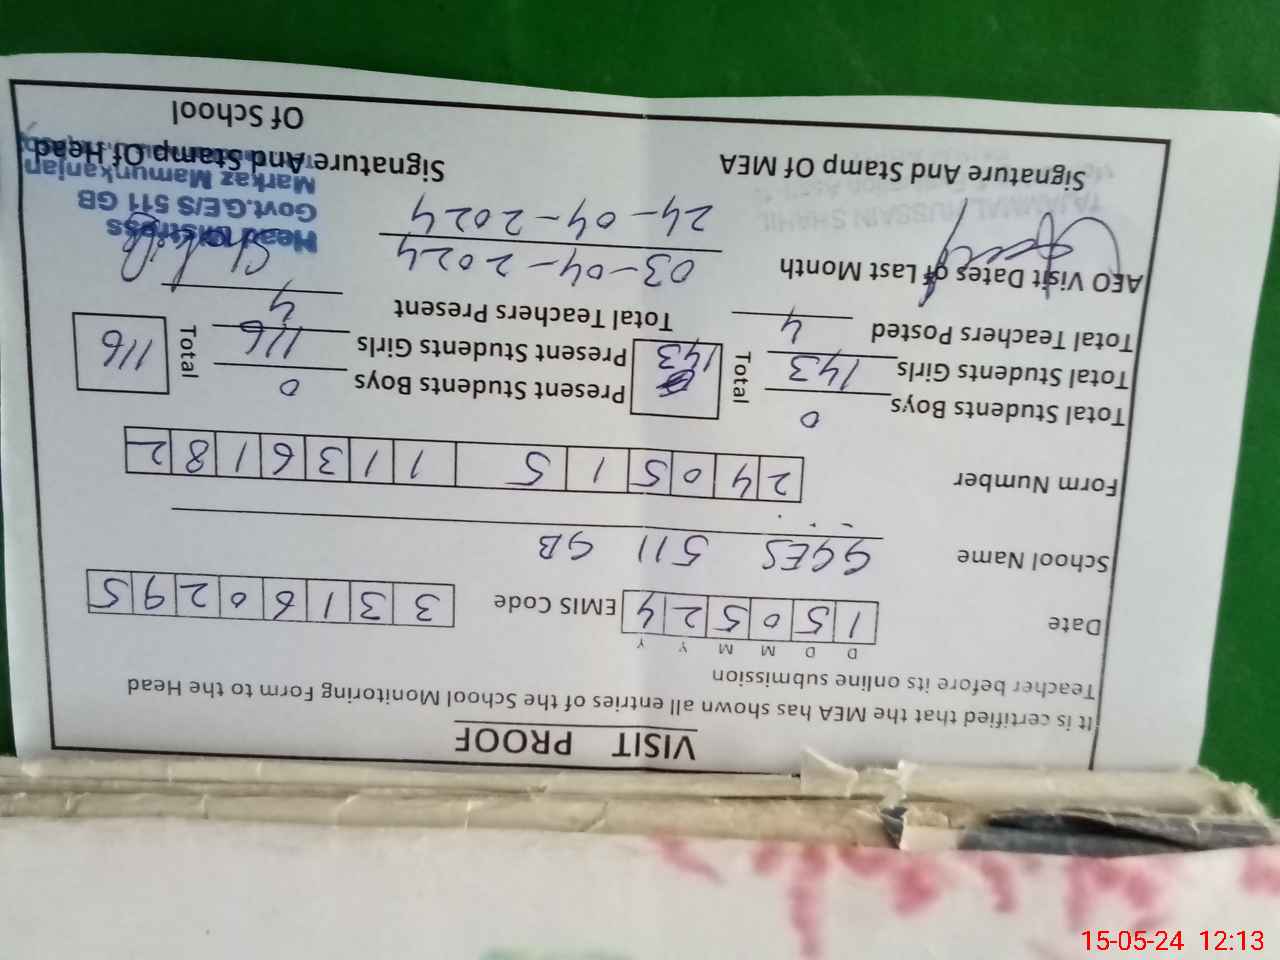 VISIT PROOF
It is certified that the MEA has shown all entries of the School Monitoring Form to the Head
Teacher before its online submission
D D M M Y Y
Date 1 5 0 5 2 4 EMIS Code 3 3 1 6 0 2 9 5
School Name GGES 511 GB
Form Number 2 4 0 5 1 5 1 1 3 6 1 8 2
Total Students Boys 0 Present Students Boys 0
Total Students Girls 143 Total 143 Present Students Girls 116 Total 116
Total Teachers Posted 4 Total Teachers Present 4
AEO Visit Dates of Last Month 03-04-2024
24-04-2024
Head Mistress
Govt.G.E/S 511 GB
Markaz Mamunkanjan
TAJAMMAL HUSSAIN
Signature And Stamp Of MEA Signature And Stamp Of Head
Of School
15-05-24 12:13